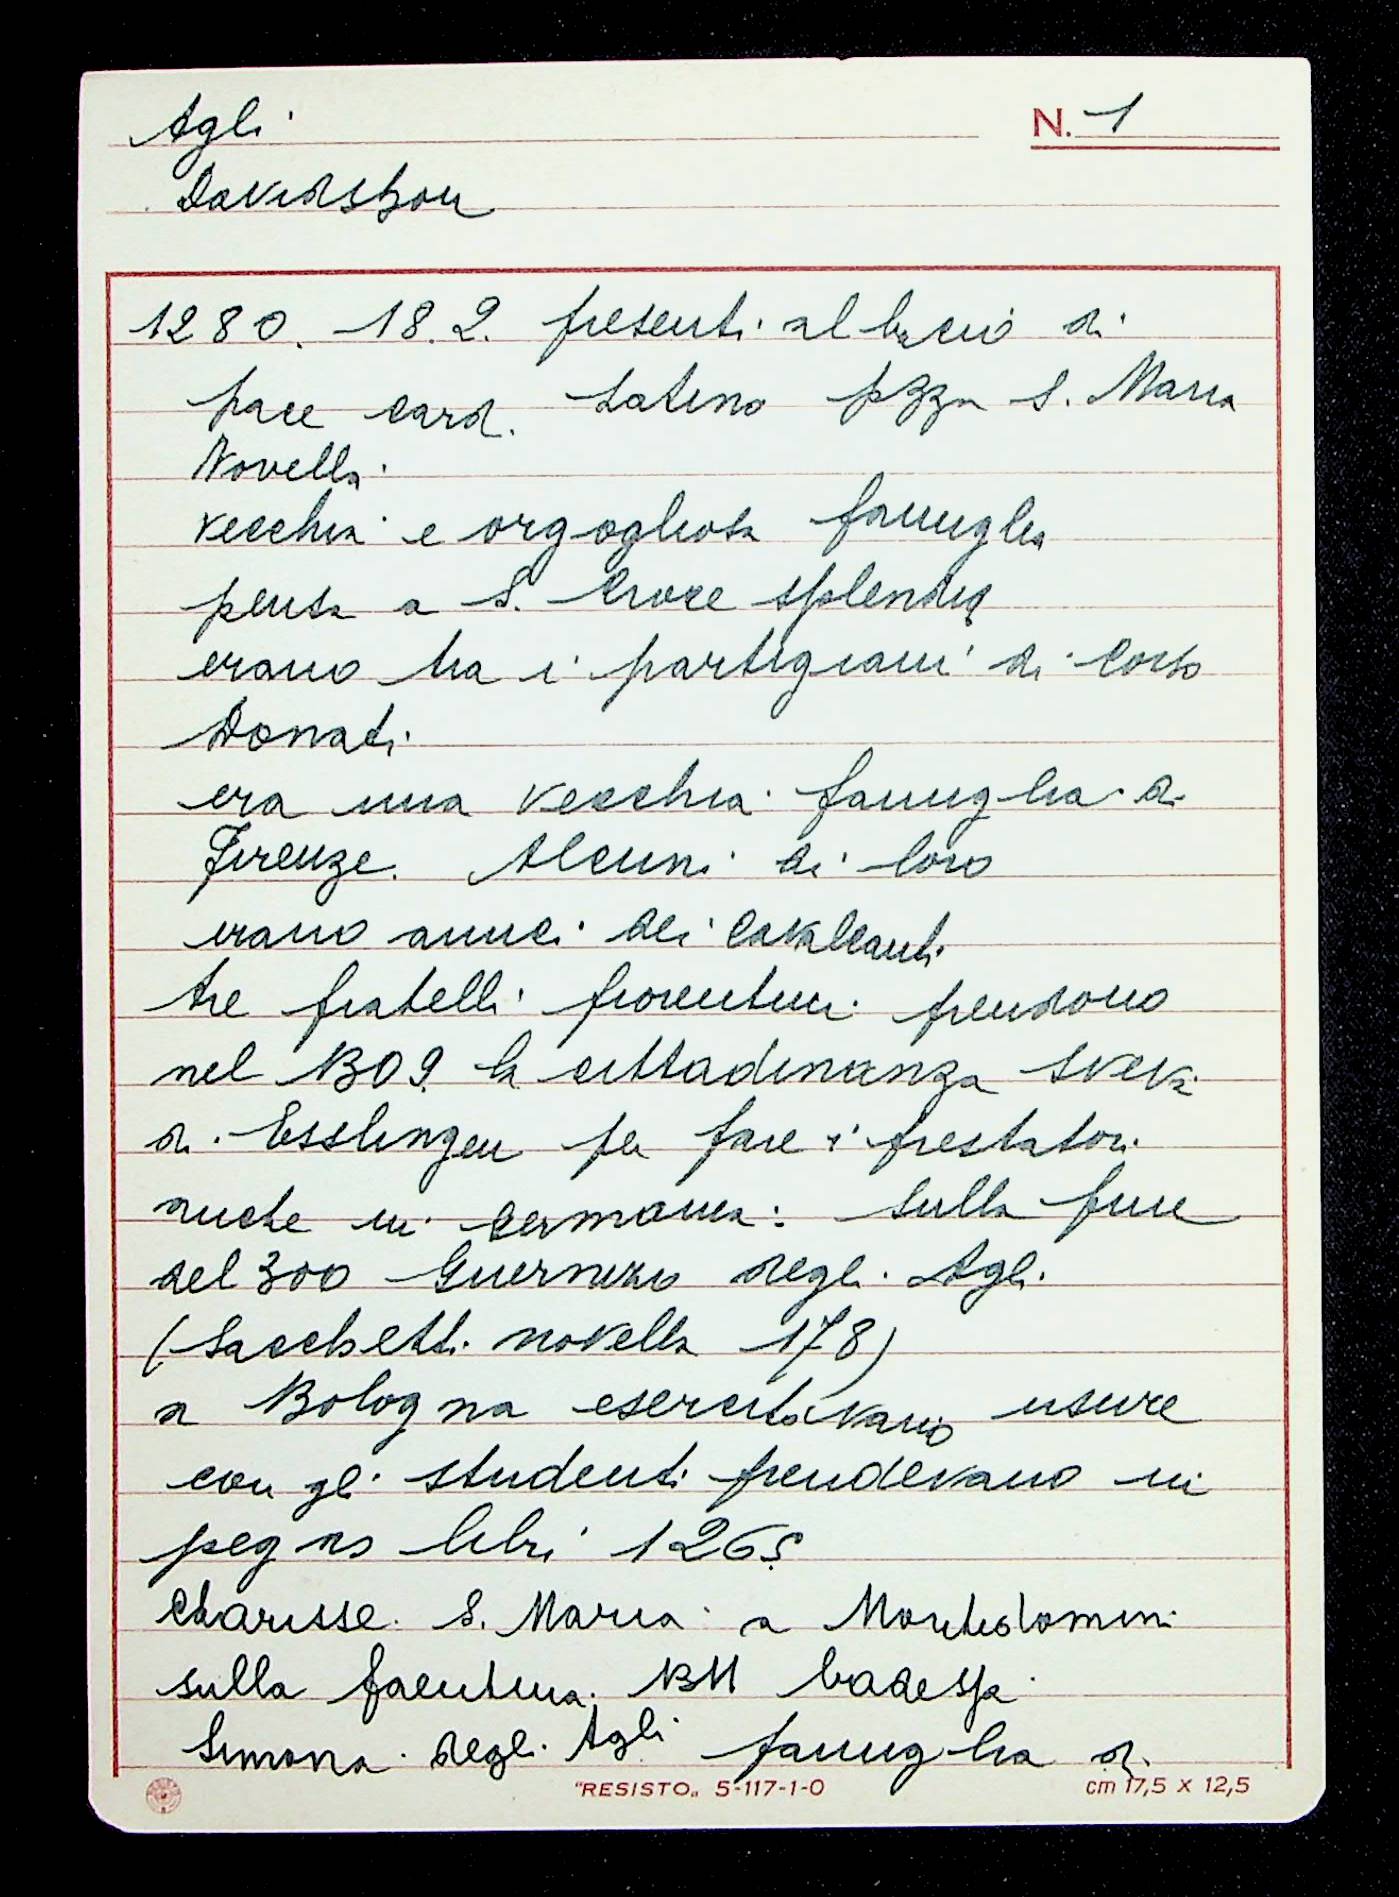 Agli
N. 1
Davidshon
1280. 18.2. presenti al bacio di
pace Card. Latino pzza S. Maria
Novella.
vecchia e orgogliosa famiglia
pensa a S. Croce splendida
erano tra i partigiani di Corso
Donati.
era una vecchia famiglia di
Firenze. Alcuni di loro
erano amici dei Cavalcanti
tre fratelli fiorentini prendono
nel 1309 la cittadinanza sveva
di Esslingen per fare i prestatori
anche in Germania: Sulla fine
del 300 Guernizo degli Agli
(Sacchetti novella 178)
a Bologna esercitavano usure
con gli studenti prendevano in
pegno libri 1265
Clarisse S. Maria a Montedomini
sulla faentina. 1311 badessa
Simona degli Agli famiglia di
"RESISTO„ 5-117-1-0
cm 17,5 x 12,5